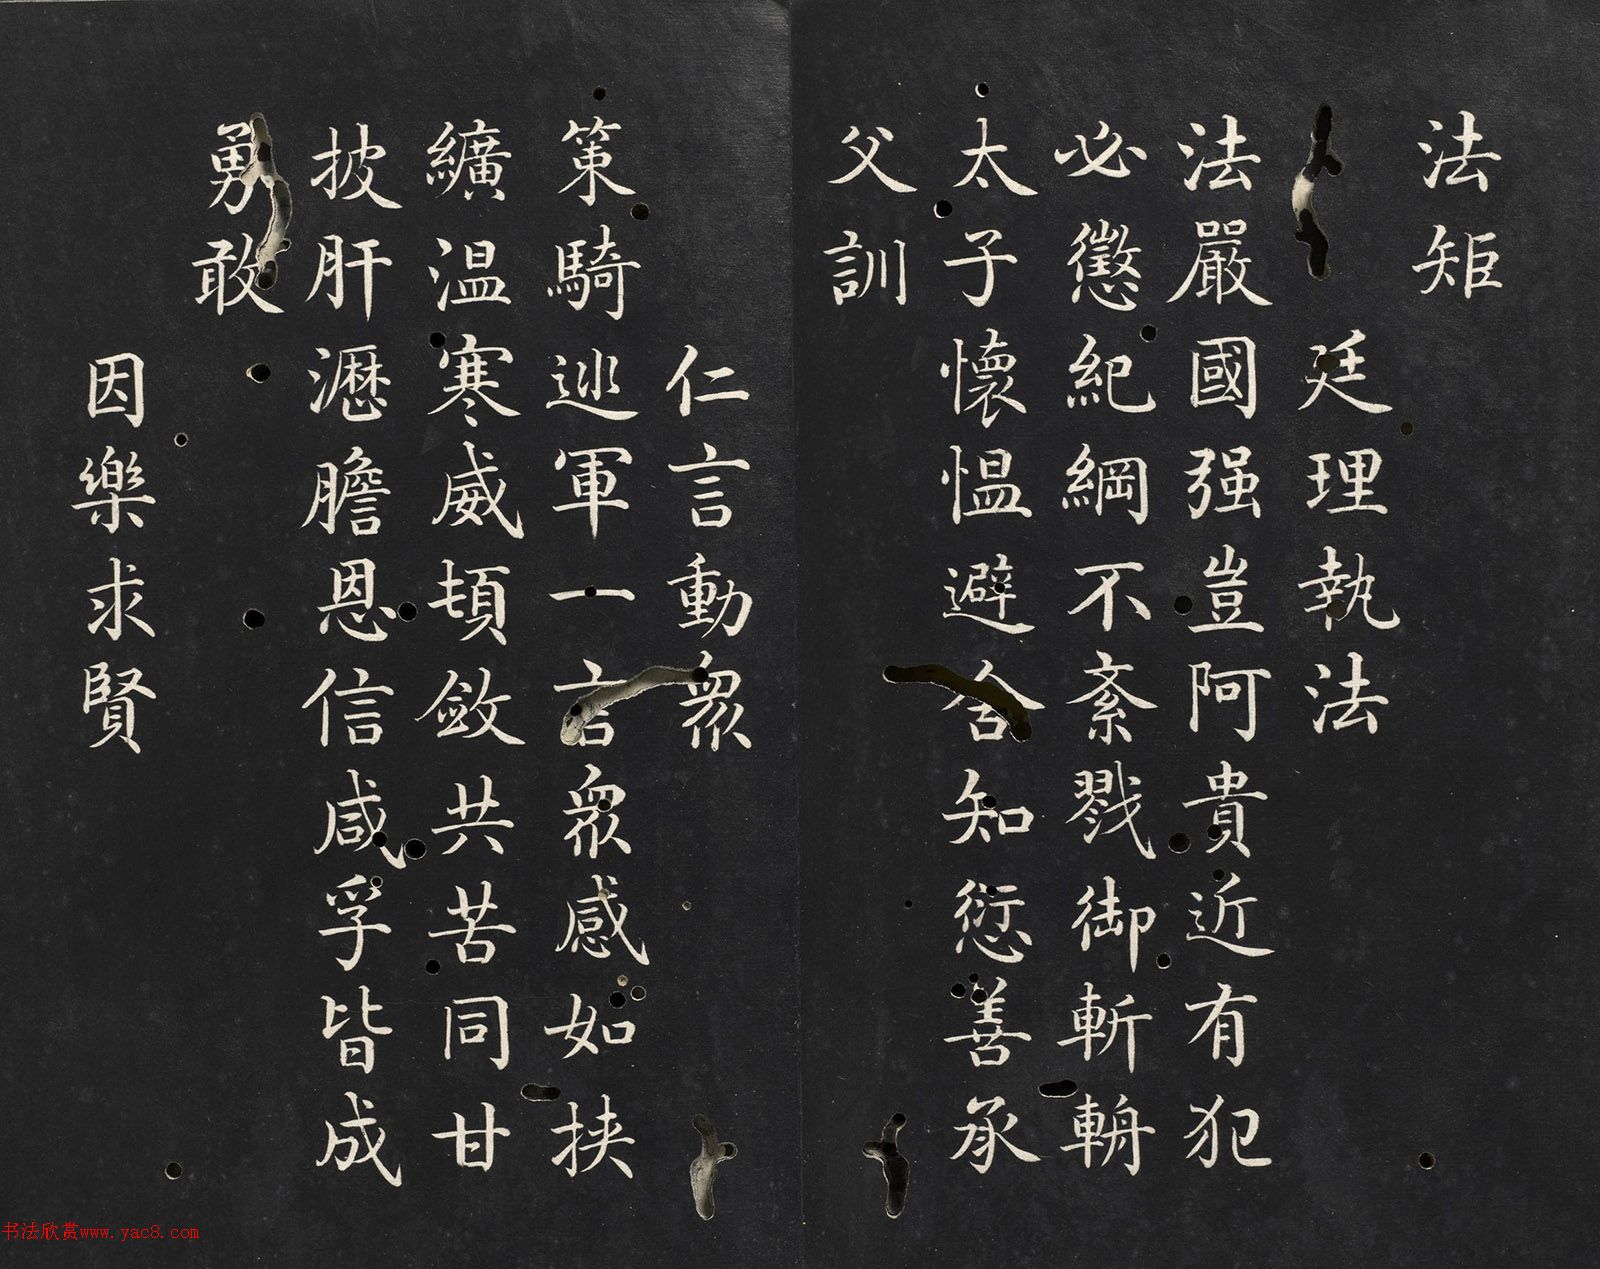 法矩
廷理執法
法嚴國强豈阿貴近有犯
必懲紀綱不紊戮御斬輈
太子懷愠避舍知愆善承
父訓
仁言動衆
策騎巡軍一言衆感如挾
纊温寒威頓斂共苦同甘
披肝瀝膽恩信咸孚皆成
勇敢
因樂求賢
书法欣赏www.yac8.com